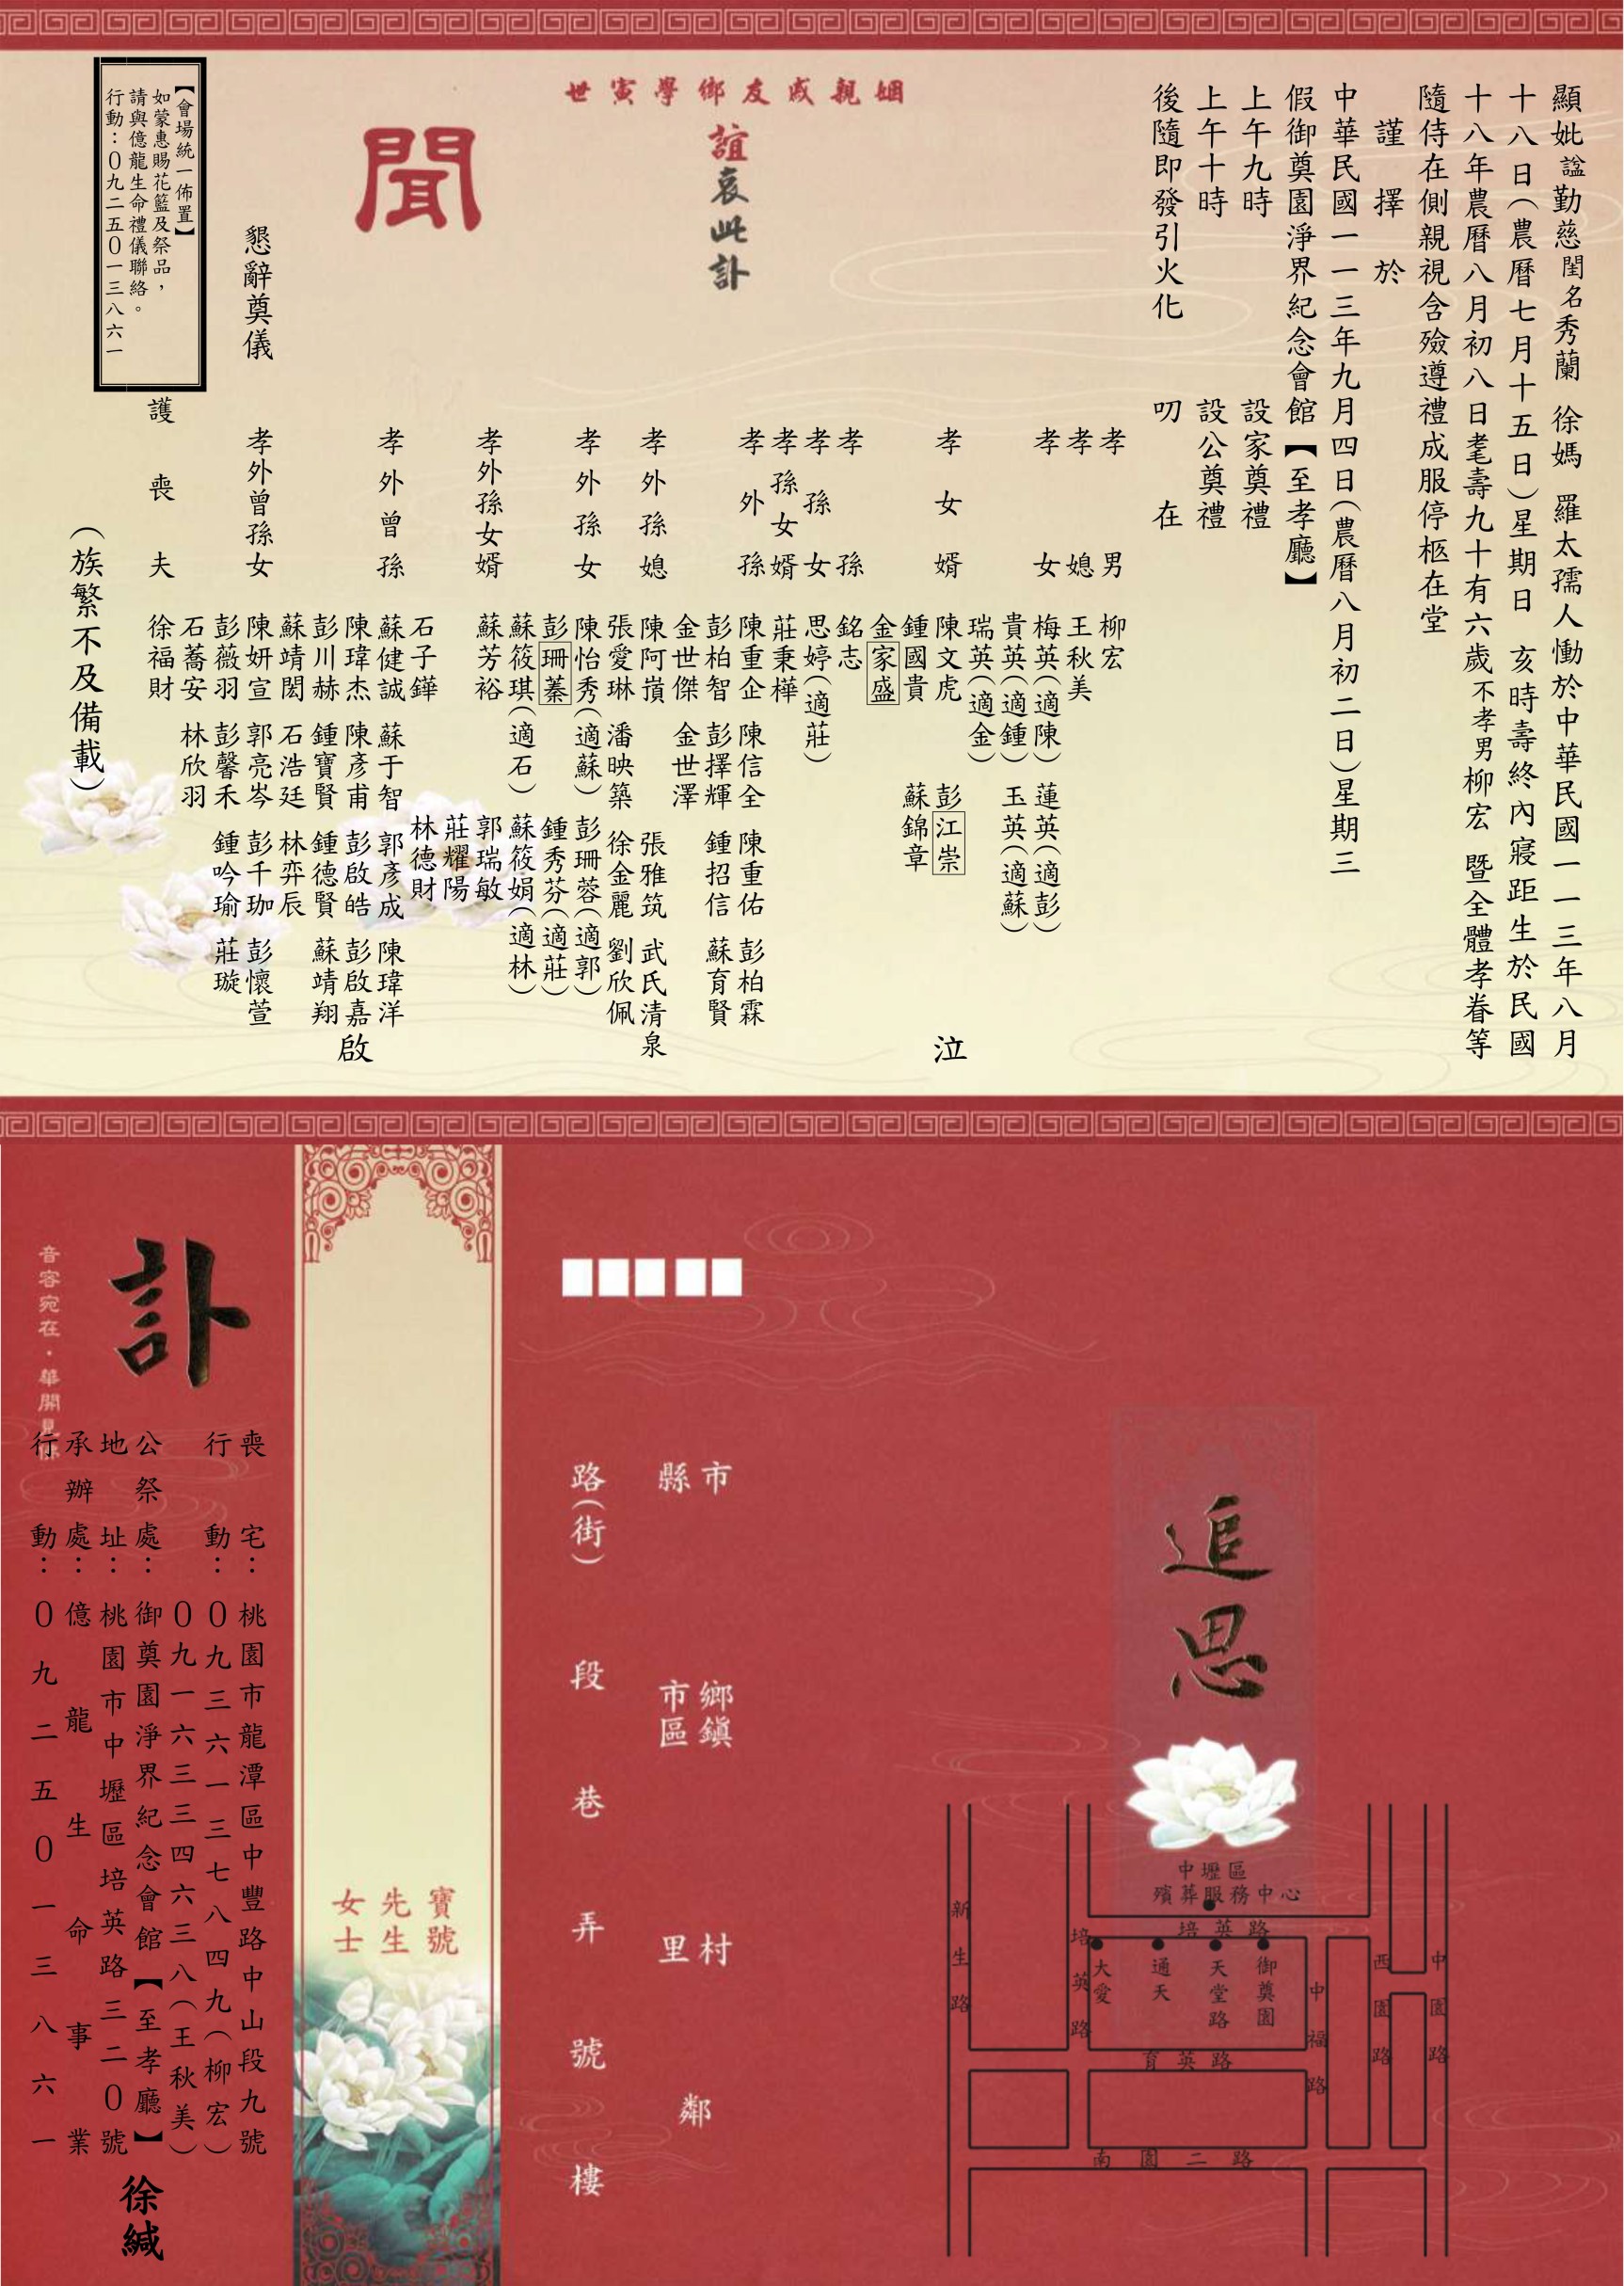 顯妣諡勤慈閨名秀蘭 徐媽 羅太孺人慟於中華民國一一三年八月
十八日(農曆七月十五日)星期日 亥時壽終內寢距生於民國
十八年農曆八月初八日耄壽九十有六歲不孝男柳宏 暨全體孝眷等
隨侍在側親視含殮遵禮成服停柩在堂
謹擇於
中華民國一一三年九月四日(農曆八月初二日)星期三
假御奠園淨界紀念會館【至孝廳】
上午九時 設家奠禮
上午十時 設公奠禮
後隨即發引火化 叨在
姻親戚友鄉學寅世
誼哀此訃
聞
孝男 柳宏
孝媳 王秋美
孝女 梅英(適陳) 蓮英(適彭)
貴英(適鍾) 玉英(適蘇)
瑞英(適金)
孝女婿 陳文虎 彭江崇
鍾國貴 蘇錦章
金家盛
泣
孝孫 銘志
孝孫女 思婷(適莊)
孝孫女婿 莊秉樺
孝外孫 陳重企 陳信全 陳重佑 彭柏霖
彭柏智 彭擇輝 鍾招信 蘇育賢
金世傑 金世澤
孝外孫媳 陳阿 張雅筑 武氏清泉
張愛琳 潘映築 徐金麗 劉欣佩
孝外孫女 陳怡秀(適蘇) 彭珊蓉(適郭)
彭珊蓁 鍾秀芬(適莊)
蘇筱琪(適石) 蘇筱娟(適林)
孝外孫女婿 蘇芳裕 郭瑞敏
莊耀陽
石子鏵 林德財
孝外曾孫 蘇健誠 蘇于智 郭彥成 陳瑋洋
陳瑋杰 陳彥甫 彭啟皓 彭啟嘉
彭川赫 鍾寶賢 鍾德賢 蘇靖翔
蘇靖閎 石浩廷 林弈辰
啟
孝外曾孫女 陳妍宣 郭亮岑 彭千珈 彭懷萱
彭薇羽 彭馨禾 鍾吟瑜 莊璇
石蕎安 林欣羽
護喪夫 徐福財
(族繁不及備載)
懇辭奠儀
【會場統一佈置】
如蒙惠賜花籃及祭品,
請與億龍生命禮儀聯絡。
行動:0九二五0一三八六一
追思
中壢區
殯葬服務中心
培英路
新生路
培英路
大愛
通天
天堂路
御奠園
中福路
西園路
中園路
育英路
南園二路
縣市
鄉鎮市區
村里
鄰
路(街)
段
巷
弄
號
樓
寶號
先生
女士
訃
音容宛在·華開見
喪宅:桃園市龍潭區中豐路中山段九號
行動:0九三六一三七八四九(柳宏)
0九一六三三四六三八(王秋美)
公祭處:御奠園淨界紀念會館【至孝廳】
地址:桃園市中壢區培英路三二0號
承辦處:億龍生命事業
行動:0九二五0一三八六一
徐緘